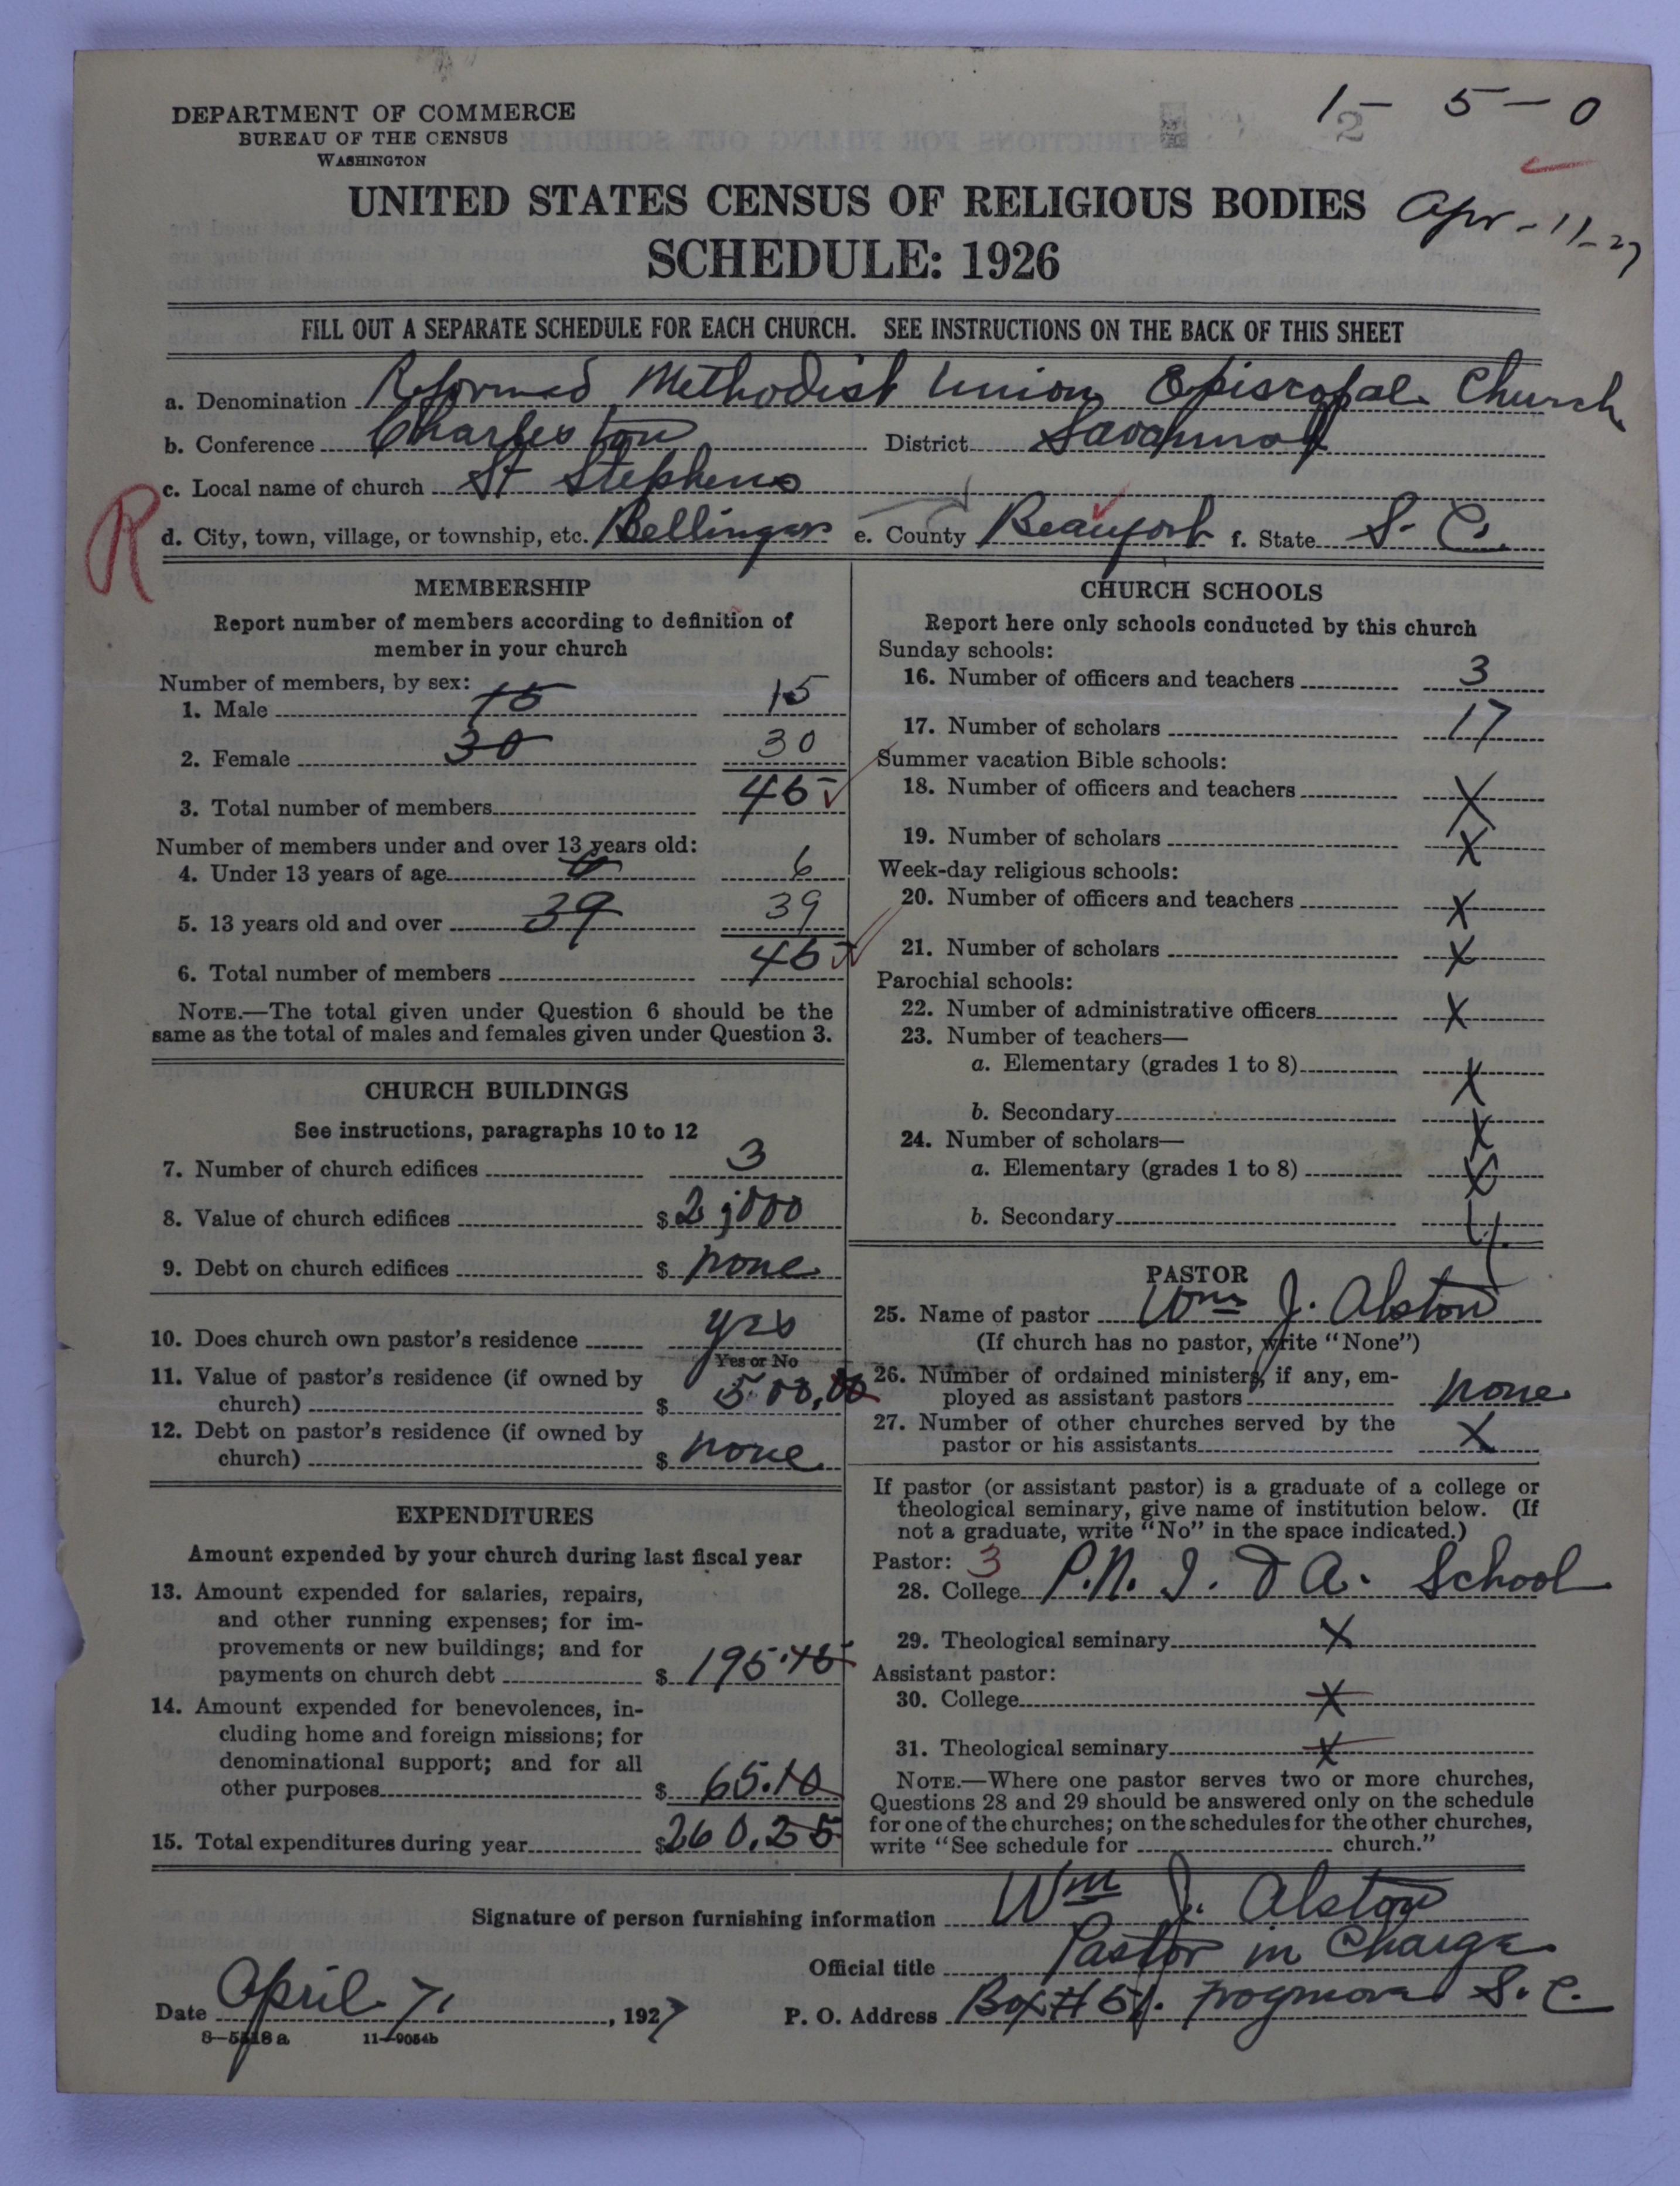 1 - 5 - 0
2
DEPARTMENT OF COMMERCE
BUREAU OF THE CENSUS
WASHINGTON
UNITED STATES CENSUS OF RELIGIOUS BODIES
Apr-11-27
SCHEDULE: 1926
FILL OUT A SEPARATE SCHEDULE FOR EACH CHURCH. SEE INSTRUCTIONS ON THE BACK OF THIS SHEET
a. Denomination Reformed Methodist Union Episcopal Church
b. Conference Charleston District Savannah
c. Local name of church St Stephens
R
d. City, town, village, or township, etc. Bellinger e. County Beaufort f. State S. C.
MEMBERSHIP
Report number of members according to definition of
member in your church
Number of members, by sex:
1. Male 15 15
2. Female 30 30
3. Total number of members 45
Number of members under and over 13 years old:
4. Under 13 years of age 6 6
5. 13 years old and over 39 39
6. Total number of members 45
NOTE.—The total given under Question 6 should be the
same as the total of males and females given under Question 3.
CHURCH BUILDINGS
See instructions, paragraphs 10 to 12
7. Number of church edifices 3
8. Value of church edifices $2,000
9. Debt on church edifices $ none
10. Does church own pastor's residence yes
Yes or No
11. Value of pastor's residence (if owned by
church) $ 500.00
12. Debt on pastor's residence (if owned by
church) $ none
EXPENDITURES
Amount expended by your church during last fiscal year
13. Amount expended for salaries, repairs,
and other running expenses; for im-
provements or new buildings; and for
payments on church debt $ 195.15
14. Amount expended for benevolences, in-
cluding home and foreign missions; for
denominational support; and for all
other purposes $ 65.10
15. Total expenditures during year $260.25
CHURCH SCHOOLS
Report here only schools conducted by this church
Sunday schools:
16. Number of officers and teachers 3
17. Number of scholars 17
Summer vacation Bible schools:
18. Number of officers and teachers X
19. Number of scholars X
Week-day religious schools:
20. Number of officers and teachers X
21. Number of scholars X
Parochial schools:
22. Number of administrative officers X
23. Number of teachers—
a. Elementary (grades 1 to 8) X
b. Secondary X
24. Number of scholars—
a. Elementary (grades 1 to 8) X
b. Secondary
PASTOR
25. Name of pastor Wm J. Alston
(If church has no pastor, write "None")
26. Number of ordained ministers, if any, em-
ployed as assistant pastors none
27. Number of other churches served by the
pastor or his assistants X
If pastor (or assistant pastor) is a graduate of a college or
theological seminary, give name of institution below. (If
not a graduate, write "No" in the space indicated.)
Pastor: 3
28. College P. N. I. & A. School
29. Theological seminary X
Assistant pastor:
30. College X
31. Theological seminary X
NOTE.—Where one pastor serves two or more churches,
Questions 28 and 29 should be answered only on the schedule
for one of the churches; on the schedules for the other churches,
write "See schedule for church."
Signature of person furnishing information Wm J. Alston
Official title Pastor in Charge
Date April 7, 1927 P. O. Address Box # 51. Frogmore S. C.
8—5518a 11—9054b